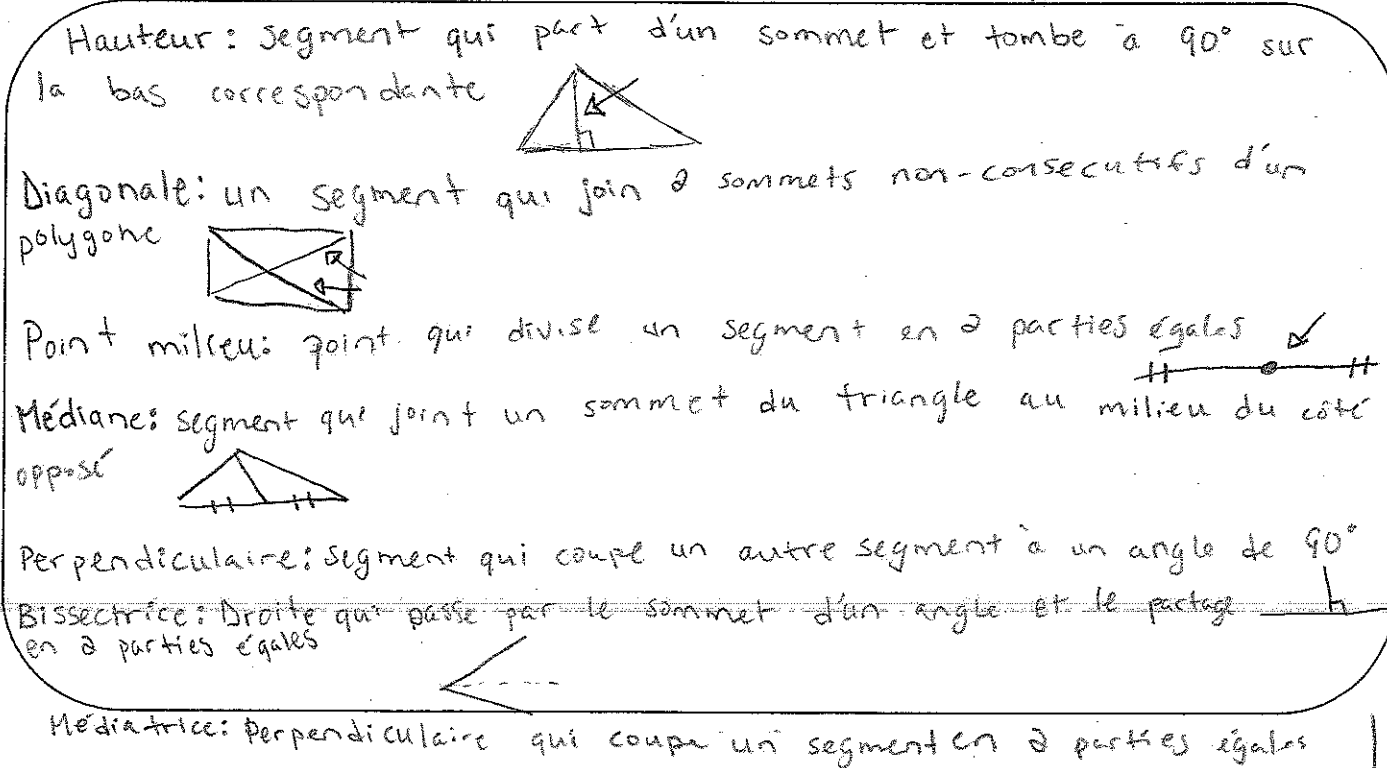 Hauteur: segment qui part d'un sommet et tombe à 90° sur
la bas correspondante
Diagonale: un segment qui join 2 sommets non-consecutifs d'un
polygone
Point milieu: point qui divise un segment en 2 parties égales
Médiane: segment qui joint un sommet du triangle au milieu du côté
opposé
Perpendiculaire: segment qui coupe un autre segment à un angle de 90°
Bissectrice: Droite qui passe par le sommet d'un angle et le partage
en 2 parties égales
Médiatrice: Perpendiculaire qui coupe un segment en 2 parties égales